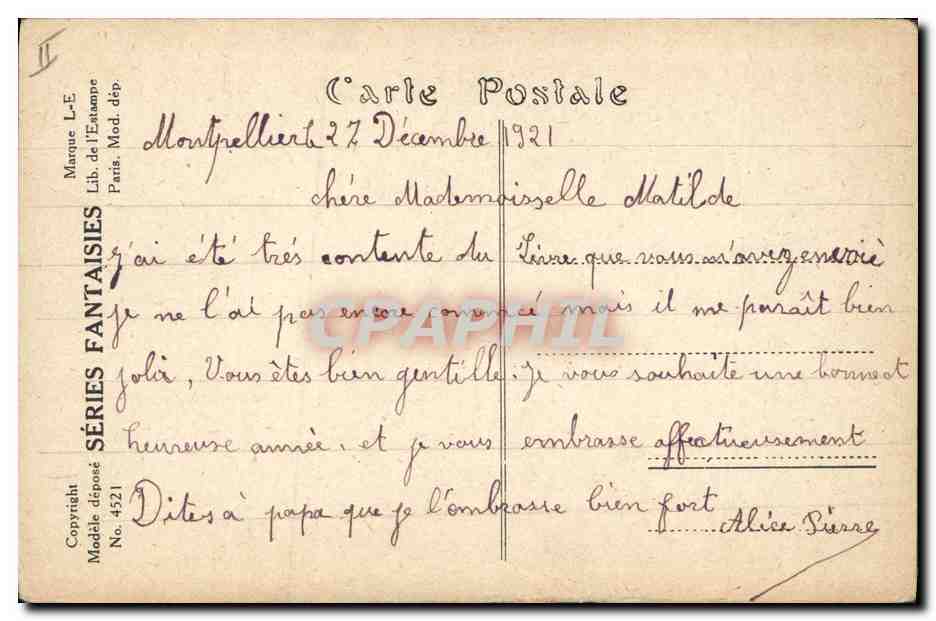 II
Carte Postale
Montpellier le 27 Décembre 1921
chére Mademoisselle Matilde
j'ai été trés contente du Livre que vous m'avez envoié
je ne l'ai pas encore commcé mais il me paraît bien
joli, Vous êtes bien gentille. Je vous souhaite une bonne et
heureuse année. et je vous embrasse affectueusement
Dites à papa que je l'embrasse bien fort
Alice Pierre
CPAPHIL
Marque L-E
Lib. de l'Estampe
Paris. Mod. dép.
SÉRIES FANTAISIES
Copyright
Modèle déposé
No. 4521